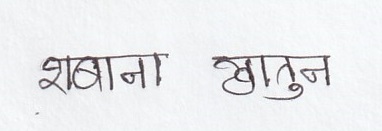 शबाना खातुन